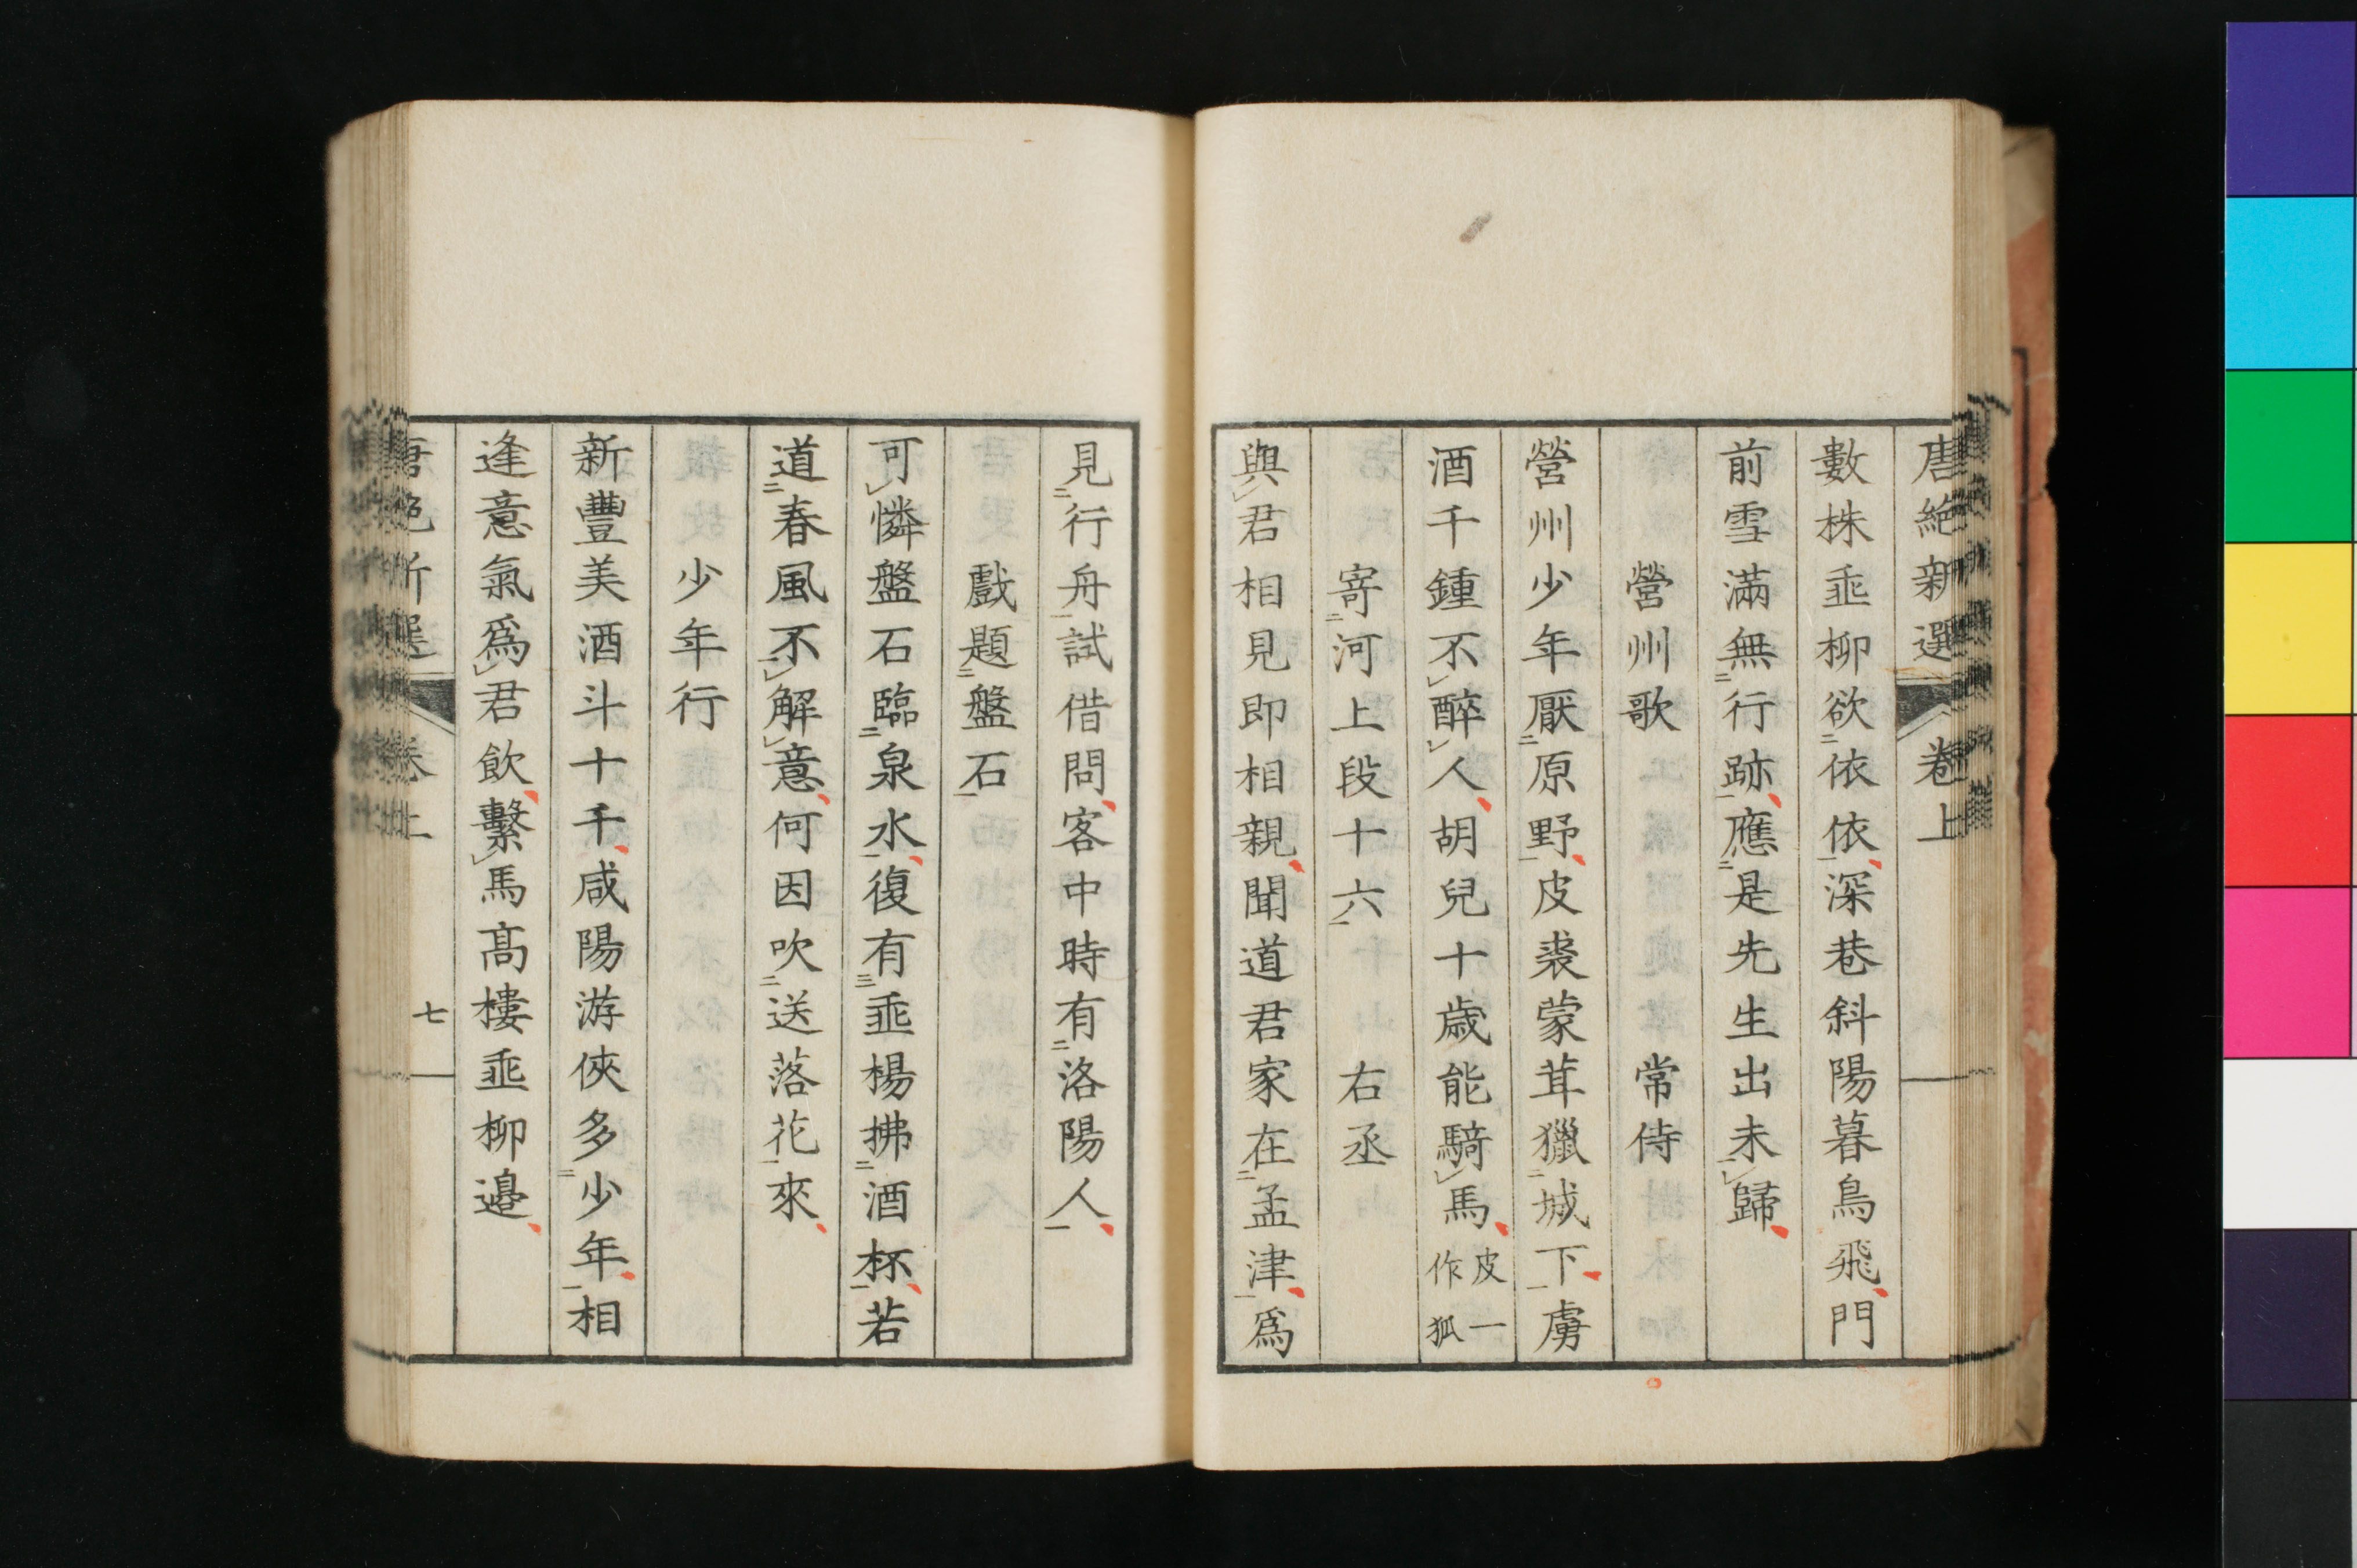 唐絶新選 卷上
數株垂柳欲依依深巷斜陽暮鳥飛門
前雪滿無行跡應是先生出未歸
營州歌 常侍
營州少年厭原野皮裘蒙茸獵城下虜
酒千鍾不醉人胡兒十歳能騎馬皮一作狐
寄河上段十六 右丞
與君相見即相親聞道君家在孟津爲
見行舟試借問客中時有洛陽人
戲題盤石
可憐盤石臨泉水復有垂楊拂酒杯若
道春風不解意何因吹送落花來
少年行
新豐美酒斗十千咸陽游俠多少年相
逢意氣爲君飲繫馬高樓垂柳邊
唐絶新選 卷上 七